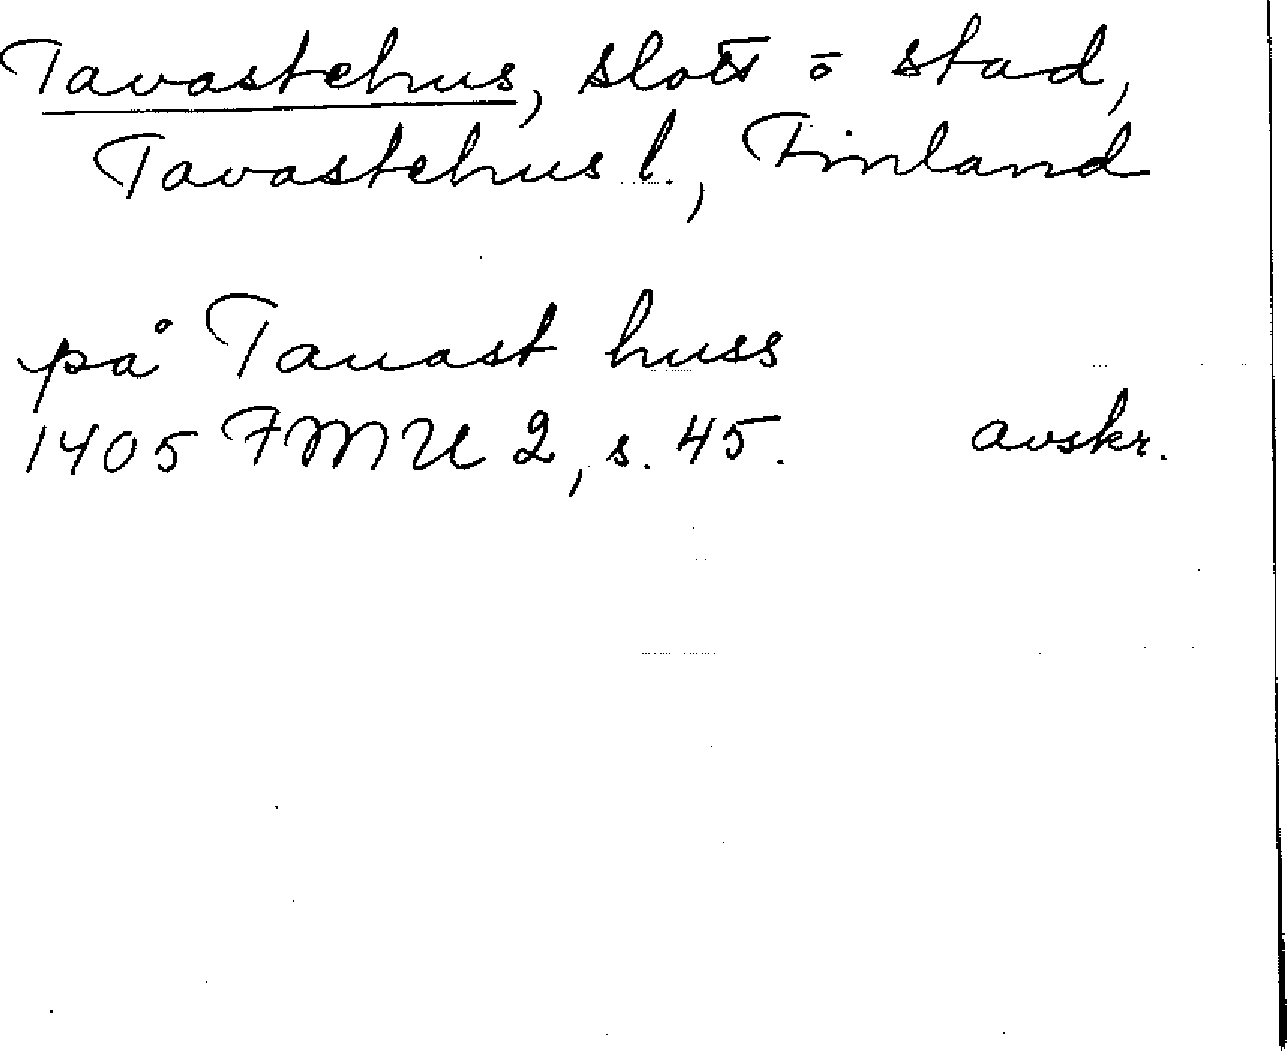 Tavastehus, slott o stad,
Tavastehus l., Finland
på Tauast huss
1405 FMU 2, s. 45. avskr.